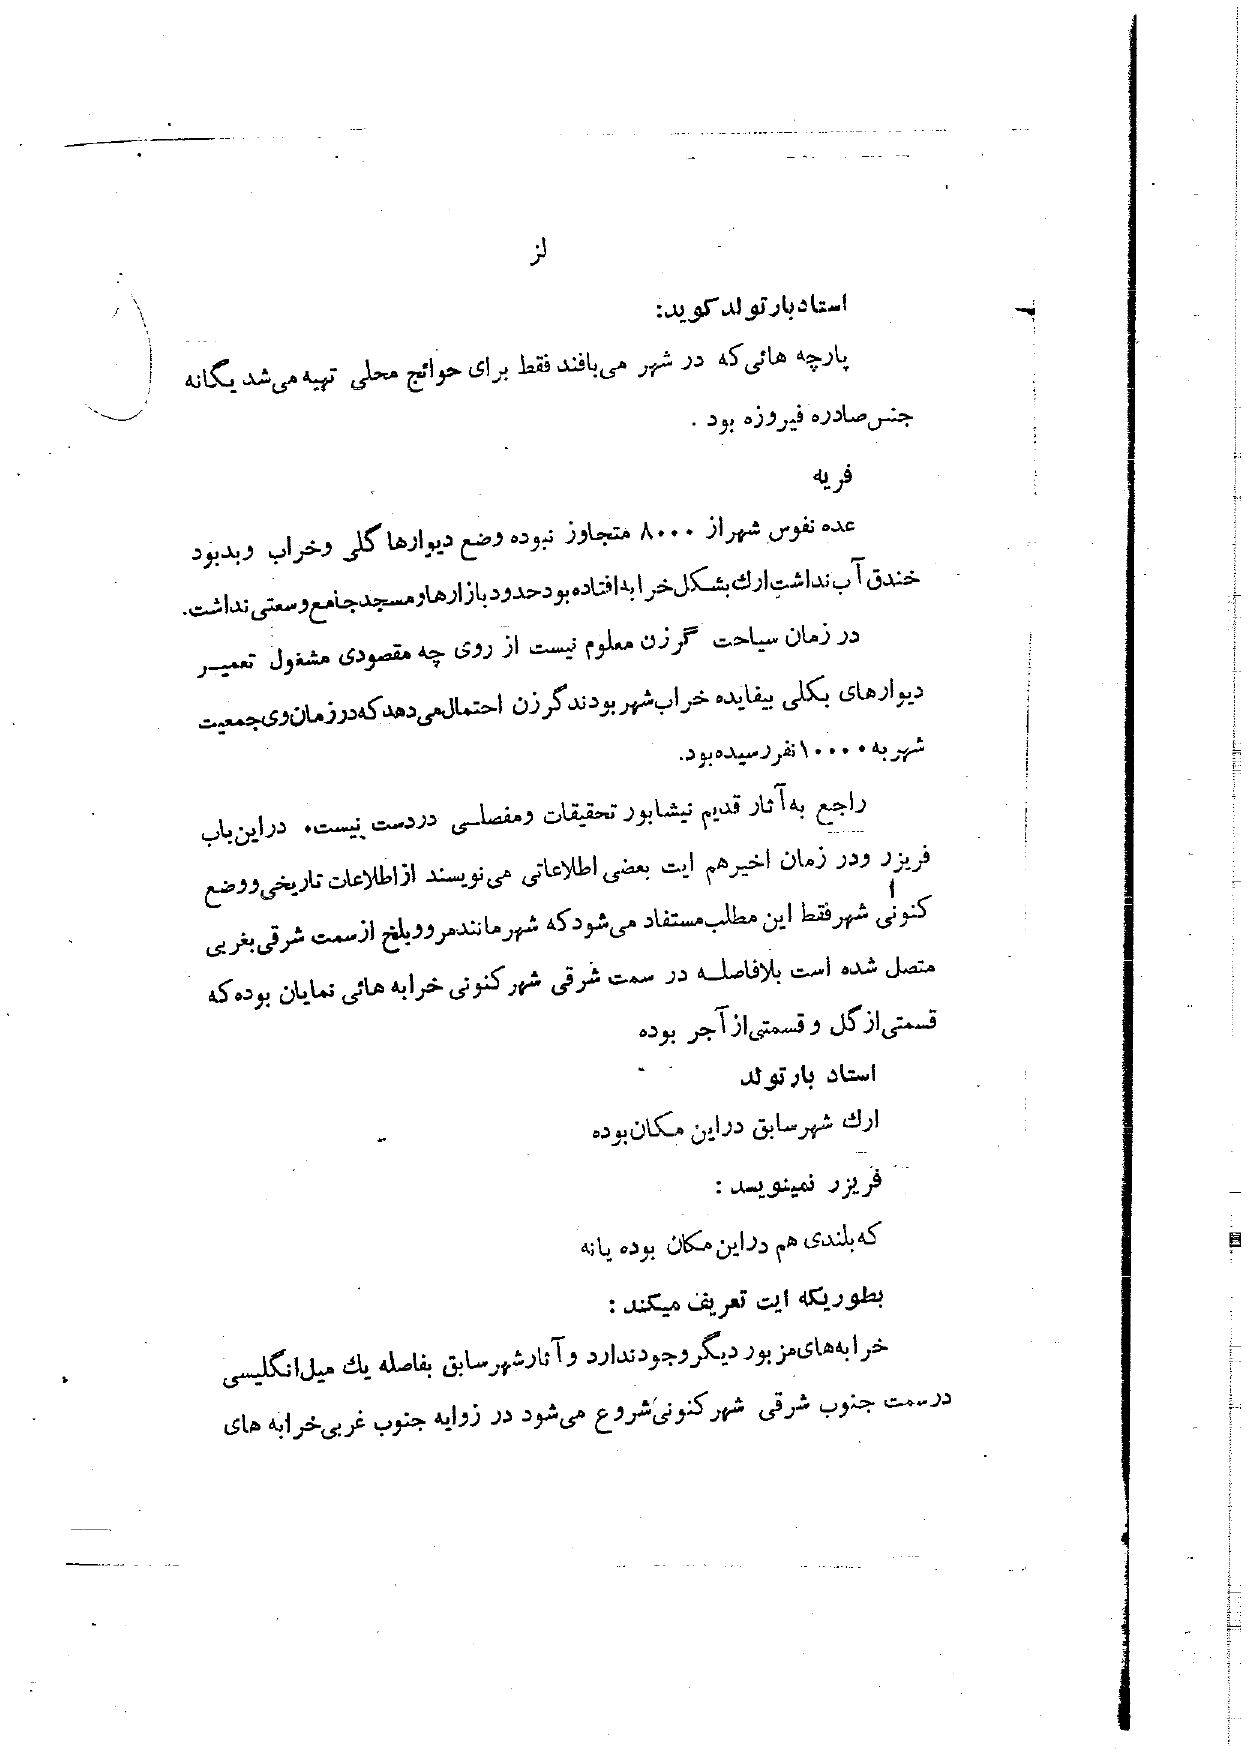 لز
استاد بارتولد گوید:
پارچه هائی که در شهر می‌بافند فقط برای حوائج محلی تهیه می‌شد یگانه
جنس صادره فیروزه بود .
فریه
عده نفوس شهر از ۸۰۰۰ متجاوز نبوده وضع دیوارها گلی وخراب وبدبود
خندق آب نداشت ارك بشكل خرابه افتاده بود حدود بازارها و مسجد جامع وسعتی نداشت.
در زمان سیاحت گرزن معلوم نیست از روی چه مقصودی مشغول تعمیر
دیوارهای بکلی بیفایده خراب شهر بودند گرزن احتمال می‌دهد که در زمان وی جمعیت
شهر به ۱۰۰۰۰ نفر رسیده بود.
راجع به آثار قدیم نیشابور تحقیقات ومفصلی دردست نیست. دراین باب
فریزر ودر زمان اخیر هم ایت بعضی اطلاعاتی می‌نویسند از اطلاعات تاریخی و وضع
کنونی شهر فقط این مطلب مستفاد می‌شود که شهر مانند مرو و بلخ از سمت شرقی بغربی
متصل شده است بلافاصله در سمت شرقی شهر کنونی خرابه هائی نمایان بوده که
قسمتی از گل و قسمتی از آجر بوده
استاد بارتولد
ارك شهر سابق دراین مکان بوده
فریزر نمینویسد :
که بلندی هم دراین مکان بوده یا نه
بطوریکه ایت تعریف میکند :
خرابه‌های مزبور دیگر وجود ندارد و آثار شهر سابق بفاصله یك میل انگلیسی
در سمت جنوب شرقی شهر کنونی شروع می‌شود در زوایه جنوب غربی خرابه های